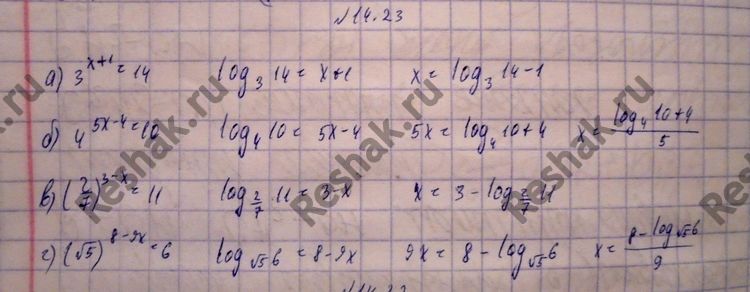 №14.23
а) 3^(x+1) = 14 log_3 14 = x+1 x = log_3 14 - 1
б) 4^(5x-4) = 10 log_4 10 = 5x-4 5x = log_4 10 + 4 x = (log_4 10 + 4)/5
в) (2/7)^(3-x) = 11 log_(2/7) 11 = 3-x x = 3 - log_(2/7) 11
г) (√5)^(8-9x) = 6 log_√5 6 = 8-9x 9x = 8 - log_√5 6 x = (8 - log_√5 6)/9
Reshak.ru
Reshak.ru
Reshak.ru